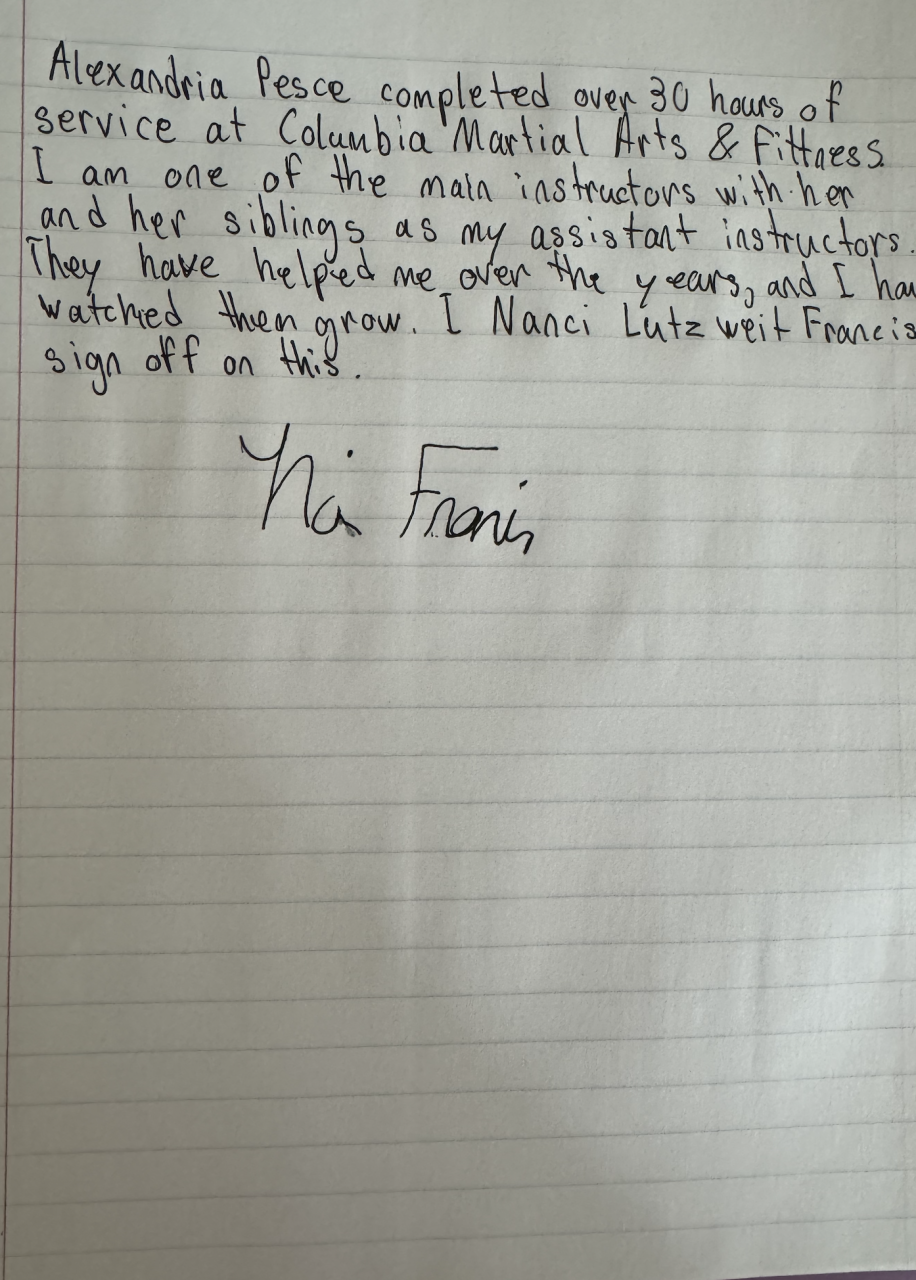 Alexandria Pesce completed over 30 hours of
service at Columbia Martial Arts & Fittness
I am one of the main instructors with her
and her siblings as my assistant instructors.
They have helped me over the years, and I hav
watched them grow. I Nanci Lutz weit Francis
sign off on this.
Francis